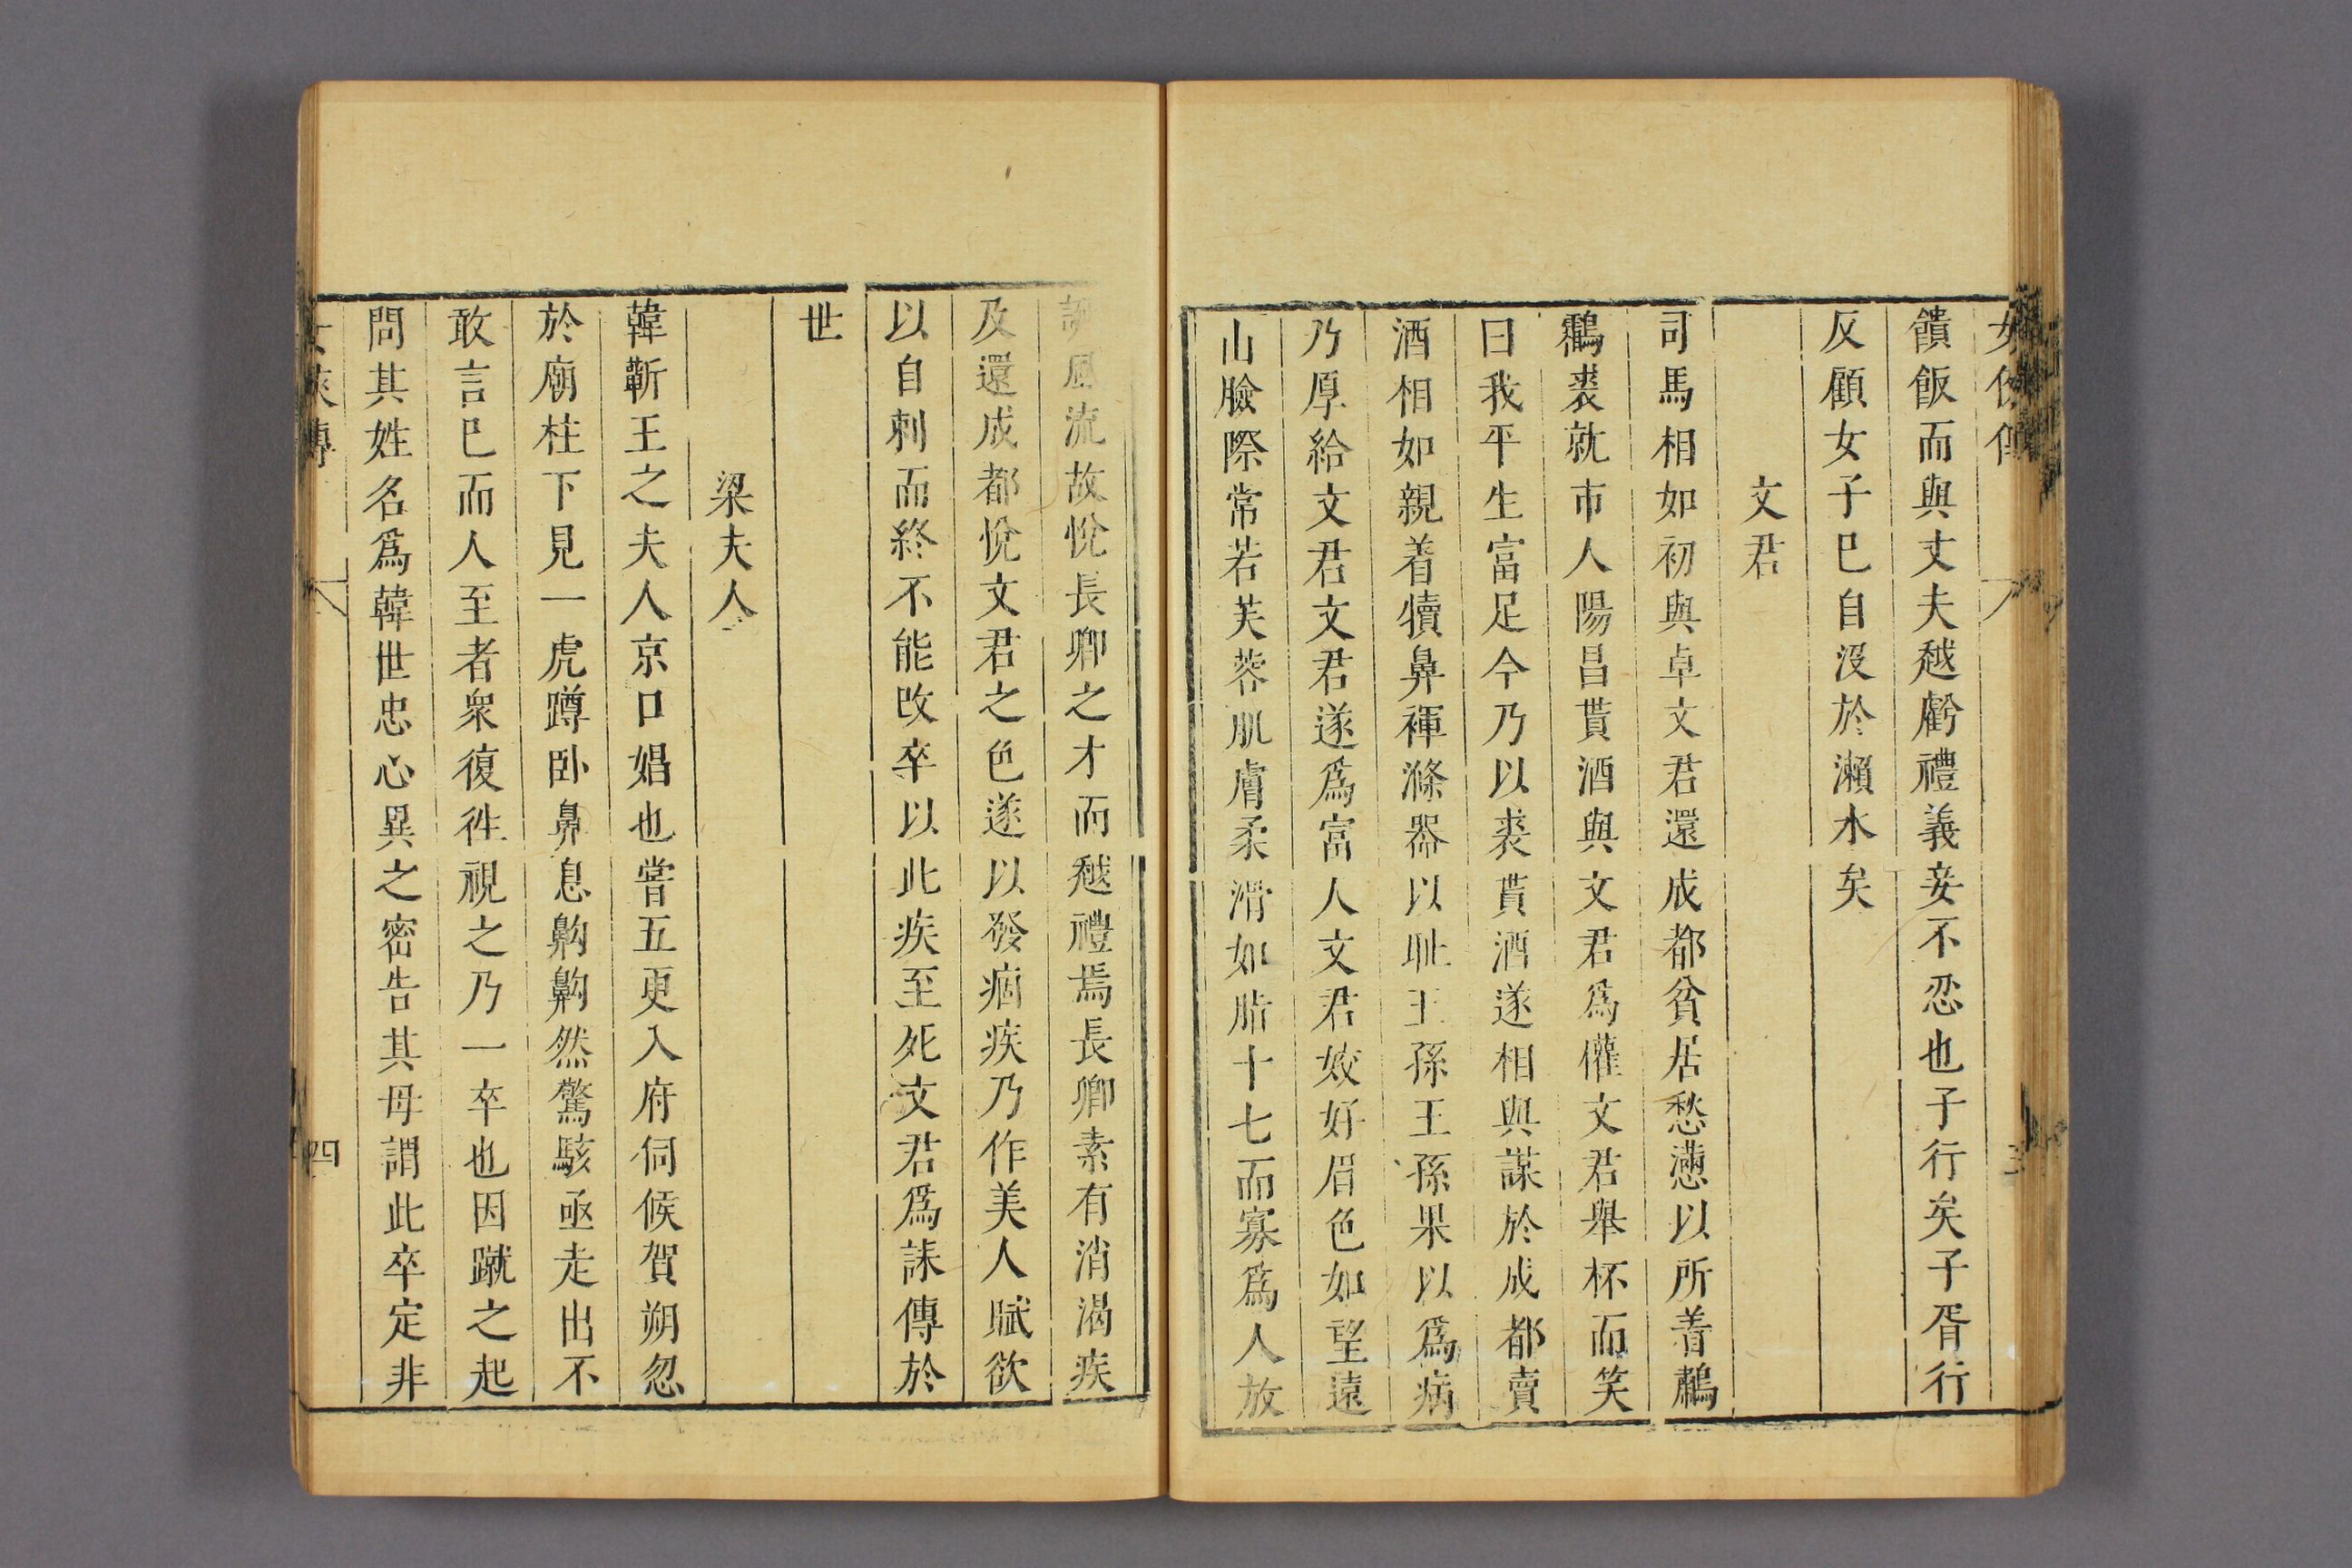 女俠傳 三
饋飯而與丈夫越虧禮義妾不忍也子行矣子胥行
反顧女子巳自沒於瀨水矣
文君
司馬相如初與卓文君還成都貧居愁懣以所着鷫
鸘裘就市人陽昌貰酒與文君爲懽文君舉杯而笑
曰我平生富足今乃以裘貰酒遂相與謀於成都賣
酒相如親着犢鼻褌滌器以耻王孫王孫果以爲病
乃厚給文君文君遂爲富人文君姣好眉色如望遠
山臉際常若芙蓉肌膚柔滑如脂十七而寡爲人放
誕風流故悅長卿之才而越禮焉長卿素有消渴疾
及還成都悅文君之色遂以發痼疾乃作美人賦欲
以自刺而終不能改卒以此疾至死文君爲誄傳於
世
梁夫人
韓蘄王之夫人京口娼也嘗五更入府伺候賀朔忽
於廟柱下見一虎蹲卧鼻息齁齁然驚駭亟走出不
敢言巳而人至者衆復徃視之乃一卒也因蹴之起
問其姓名爲韓世忠心異之密告其母謂此卒定非
女俠傳 四